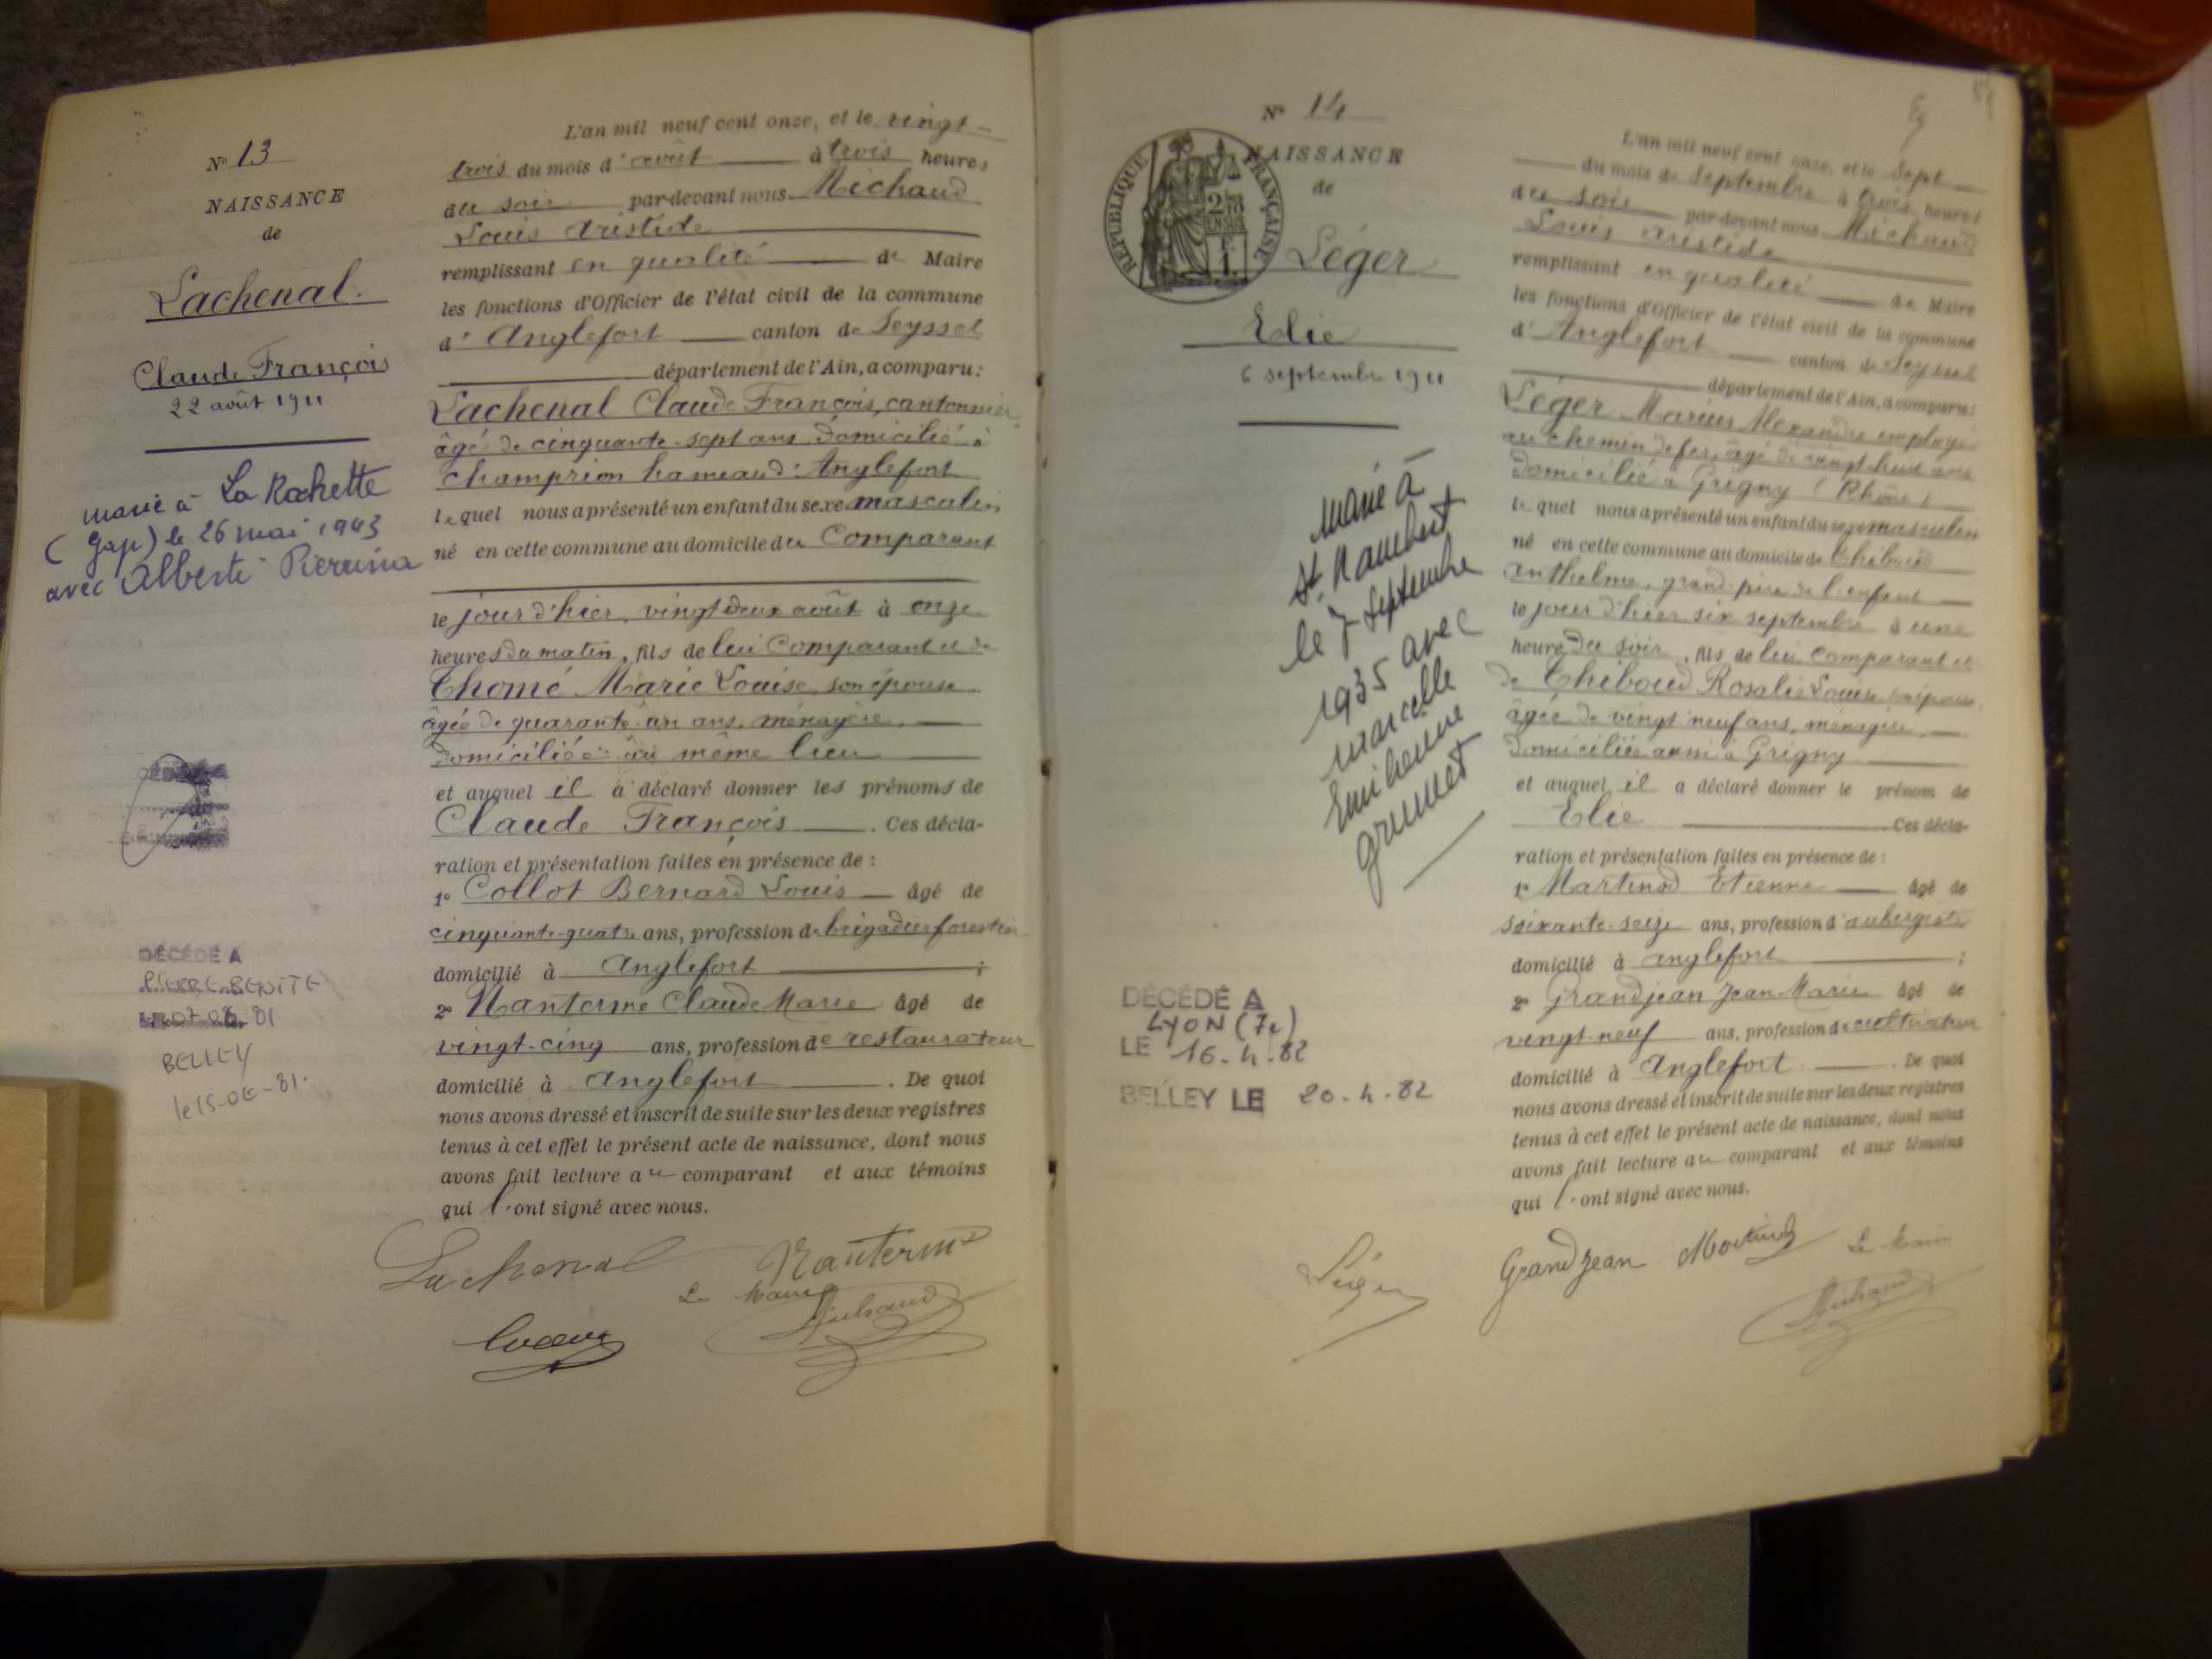 N° 13
NAISSANCE
de
Lachenal.
Claude François
22 août 1911
marié à La Rochette
(Gap) le 26 mai 1943
avec Alberti Pierrina
DÉCÉDÉ A
PIERRE-BENITE
07-06-81
BELLEY
le 15-06-81.
L'an mil neuf cent onze, et le vingt-
trois du mois d'août à trois heures
du soir par-devant nous Michaud
Louis Aristide
remplissant en qualité de Maire
les fonctions d'Officier de l'état civil de la commune
d'Anglefort canton de Seyssel
département de l'Ain, a comparu:
Lachenal Claude François, cantonnier
âgé de cinquante-sept ans domicilié à
Champrion hameau d'Anglefort
lequel nous a présenté un enfant du sexe masculin
né en cette commune au domicile du Comparant
le jour d'hier, vingt deux août à onze
heures du matin, fils de lui Comparant et de
Thomé Marie Louise, son épouse.
âgée de quarante-un ans, ménagère,
domiciliée au même lieu
et auquel il a déclaré donner les prénoms de
Claude François. Ces décla-
ration et présentation faites en présence de:
1° Collot Bernard Louis âgé de
cinquante-quatre ans, profession de brigadier forestier
domicilié à Anglefort;
2° Nanterme Claude Marie âgé de
vingt-cinq ans, profession de restaurateur
domicilié à Anglefort. De quoi
nous avons dressé et inscrit de suite sur les deux registres
tenus à cet effet le présent acte de naissance, dont nous
avons fait lecture au comparant et aux témoins
qui l'ont signé avec nous.
Lachenal Nanterme
Le Maire
Michaud
N° 14
NAISSANCE
de
RÉPUBLIQUE FRANÇAISE
Léger
Elie
6 septembre 1911
marié à
St. Rambert
le 7 Septembre
1935 avec
marcelle
grumet
DÉCÉDÉ A
LYON (7e)
LE 16-4-82
BELLEY LE 20-4-82
L'an mil neuf cent onze, et le Sept
du mois de Septembre à trois heures
du soir par-devant nous Michaud
Louis Aristide
remplissant en qualité de Maire
les fonctions d'Officier de l'état civil de la commune
d'Anglefort canton de Seyssel
département de l'Ain, a comparu:
Léger Marius Alexandre employé
au chemin de fer, âgé de vingt huit ans
domicilié à Grigny (Rhône)
lequel nous a présenté un enfant du sexe masculin
né en cette commune au domicile de Thiboud
Anthelme, grand-père de l'enfant
le jour d'hier six septembre à une
heure du soir, fils de lui comparant et
de Thiboud Rosalie Louise son épouse,
âgée de vingt neuf ans, ménagère,
domiciliée aussi à Grigny
et auquel il a déclaré donner le prénom de
Elie Ces décla-
ration et présentation faites en présence de:
1° Martinod Etienne âgé de
soixante-seize ans, profession d'aubergiste
domicilié à Anglefort;
2° Grandjean Jean Marie âgé de
vingt-neuf ans, profession de cultivateur
domicilié à Anglefort. De quoi
nous avons dressé et inscrit de suite sur les deux registres
tenus à cet effet le présent acte de naissance, dont nous
avons fait lecture au comparant et aux témoins
qui l'ont signé avec nous.
Léger Grandjean Martinod Le Maire
Michaud